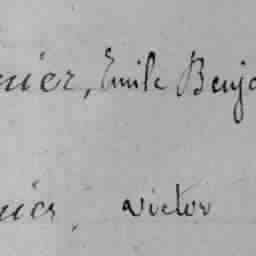 nier, Emile Benja
nier, Victor